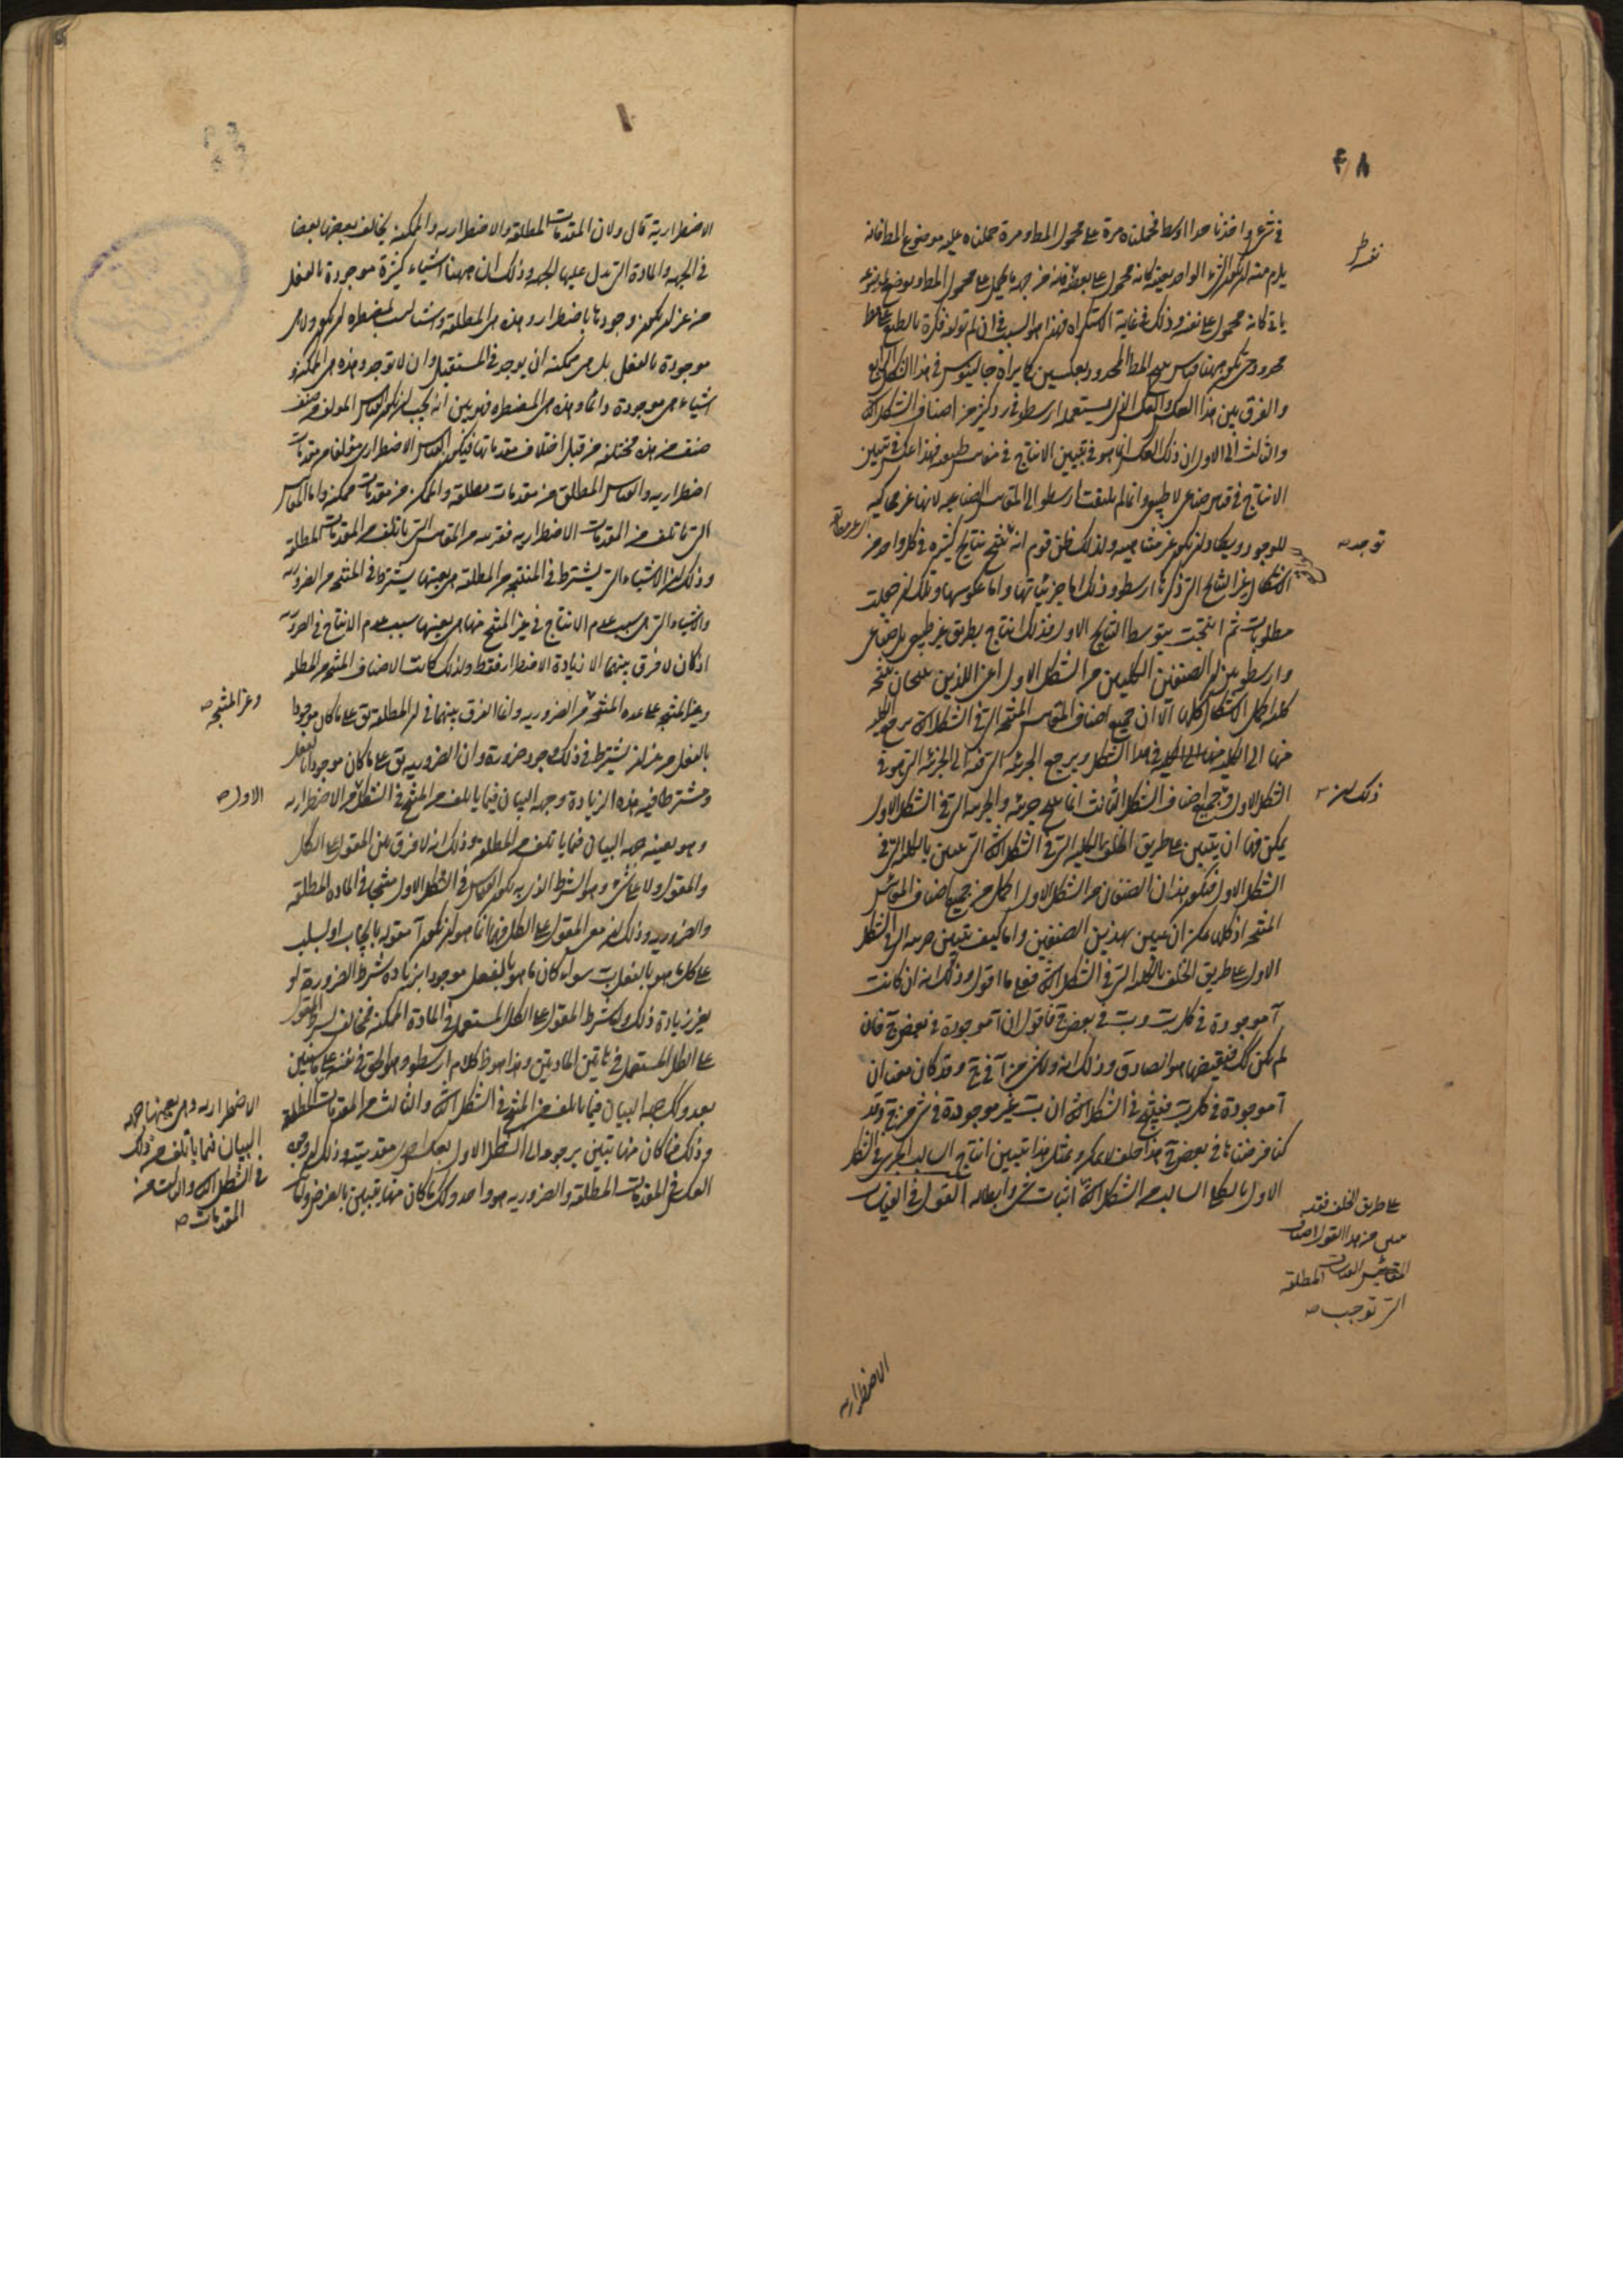 ٤٨
في شيء واخذنا حدا اوسط فحملناه مرة على محمول المط ومرة حملناه عليه موضوع المط فانه
يلزم منه ان يكون الشيء الواحد بعينه كانه محمول على نفسه فانه من جهة ما يحمل على محمول المط او يوضع
ياتي كانه محمول على نفسه وذلك في غاية الاستكراه فهذا هو السبب في ان لم تولفه فكرة بالطبع
محدود حتى يكون ههنا قياس المط المحدود بعكسين كما يراه جالينوس في هذا الشكل الرابع
والفرق بين هذا العكس والعكس الذي يستعمله ارسطو في رد كثير من اصناف الشكل الثاني
والثالث الى الاول ان ذلك العكس انما هو في تبيين الانتاج في قياس طبيعي وهذا عكس في تبيين
الانتاج في قياس صناعي لا طبيعي وانما لم يلتفت ارسطو الى المقاييس الصناعية لانها غير محاكية
للوجود ويكاد ان يكون غير متناهية ولذلك ظن قوم انه ينتج نتايج كثيرة في كل واحد من
الاشكال غير النتايج التي ذكرها ارسطو وذلك اما جزئياتها واما عكوسها وتلك ان جعلت
مطلوبات ثم انتجت بتوسط النتايج الاول فذلك انتاج بطريق غير طبيعي بل صناعي
وارسطو بين ان الصنفين الكليين من الشكل الاول اعني اللذين ينتجان نتيجة
كلية اكمل الاشكال كلها الا ان جميع اصناف المقاييس المنتجة التي في الشكل الثاني يرجع الكلية
منها الى الكلية في هذا الشكل ويرجع الجزئية التي فيه الى الجزئية التي هو في
الشكل الاول وجميع اصناف الشكل الثالث انما ينتج جزئية والجزئية التي في الشكل الاول
يمكن فيها ان يتبين على طريق الخلف بالكلية التي في الشكل الثاني التي تتبين بالكلية التي في
الشكل الاول فيكون هذان الصنفان من الشكل الاول اكمل من جميع اصناف المقاييس
المنتجة اذ كلها يمكن ان يتبين بهذين الصنفين واما كيف يتبين جزئية التي في الشكل
الاول على طريق الخلف بالكلية التي في الشكل الثاني فعلى ما اقول وذلك انه ان كانت
آ موجودة في كل ب وب في بعض ج فاقول ان آ موجودة في بعض ج فان
لم يكن كك فنقيضها هو الصادق وذلك انه ولا شيء من آ في ج وقد كان معنا ان
آ موجودة في كل ب فينتج في الشكل الثاني ان ب غير موجودة في شيء من ج وقد
كنا فرضناها في بعض ج هذا خلف لا يمكن وبمثل هذا يتبين انتاج السالب الجزئي في الشكل
الاول بالكلي السالب من الشكل الثاني اثبات شيء وابطاله القول في القياسات
نفسه ط
توجد صه
ذلك ان
على طريق الخلف فقد
تبين من هذا القول اصناف
المقاييس المطلقة
التي توجب صه
الاضطرارية
الاضطرارية قال ولان المقدمات المطلقة والاضطرارية والممكنة يخالف بعضها بعضا
في الجهة والمادة التي تدل عليها الجهة وذلك ان ههنا اشياء كثيرة موجودة بالفعل
من غير ان يكون وجودها باضطرار وهذه هي المطلقة واشياء ليست بمضطرة ان يكون ولا هي
موجودة بالفعل بل هي ممكنة ان يوجد في المستقبل وان لا توجد وهذه هي الممكنة و
اشياء هي موجودة دائما وهذه هي المضطرة فهو بين انه يجب ان يكون القياس المولف من صنف
صنف من هذه مختلفة من قبل اختلاف مقدماتها فيكون القياس الاضطراري مؤلفا من مقدمات
اضطرارية والقياس المطلق من مقدمات مطلقة والممكن من مقدمات ممكنة واما المقاييس
التي تاتلف من المقدمات الاضطرارية فقريبة من المقاييس التي تاتلف من المقدمات المطلقة
وذلك ان الاشياء التي يشترط في المنتجة من المطلقة هي بعينها يشترط في المنتجة من الضرورية
والاشياء التي هي سبب عدم الانتاج في غير المنتج منها هي بعينها سبب عدم الانتاج في الضرورية
اذ كان لا فرق بينهما الا زيادة الاضطرار فقط ولذلك كانت الاصناف المنتجة من المطلقة
وغير المنتجة على عدة المنتجة من الضرورية وانما الفرق بينهما في ان المطلقة تق على ما كان موجودا
بالفعل من غير ان يشترط في ذلك وجود ضرورة وان الضرورية يق على ما كان موجودا بالفعل
ومشترطا فيه هذه الزيادة وجهة البيان فيما ياتلف من المنتج في الشكل من الاضطرارية
وهو بعينه جهة البيان فيما ياتلف من المطلقة وذلك انه لا فرق بين المقول على الكل
والمقول ولا على شيء وهو الشرط الذي به يكون القياس في الشكل الاول منتجا في المادة المطلقة
والضرورية وذلك ان معنى المقول على الكل فيهما انما هو ان يكون آ مقولة بايجاب او بسلب
على كل ما هو بالفعل ب سواء كان ما هو بالفعل موجودا بزيادة شرط الضرورة او
بغير زيادة ذلك ولكن شرط المقول على الكل المستعمل في المادة الممكنة مخالف لشرط المقول
على الكل المستعمل في هاتين المادتين وهذا هو ظ كلام ارسطو وهو الحق في نفسه على ما سنبين
بعد وكك جهة البيان فيما ياتلف من المنتج في الشكل الثاني والثالث من المقدمات المطلقة
وذلك ما كان منها يتبين برجوعه الى الشكل الاول بعكس احدى مقدمتيه وذلك ان وجه
العكس في المقدمات المطلقة والضرورية هو واحد وكك ما كان منها يتبين بالفرض
وغير المنتجة صه
الاول صه
الاضطرارية وهي بعينها جهة
البيان فيما ياتلف من ذلك
في الشكل الثاني والثالث من
المقدمات صه